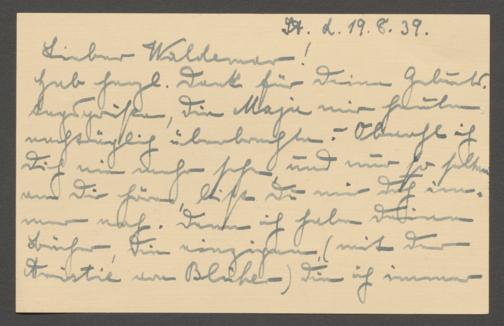 St. d. 19.8.39.
Lieber Waldemar!
Hab herzl. Dank für Deine Geburts-
tagsgrüße, die Maja mir heute
nachträglich überbrachte. – Obwohl ich
Dich nie mehr seh, und nur so selten
von Dir höre, bist Du mir doch im-
mer nah. Denn ich habe Deine
Bücher, die einzigen, (mit der
Aristie von Blüher) die ich immer